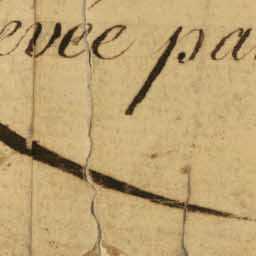 evée pa